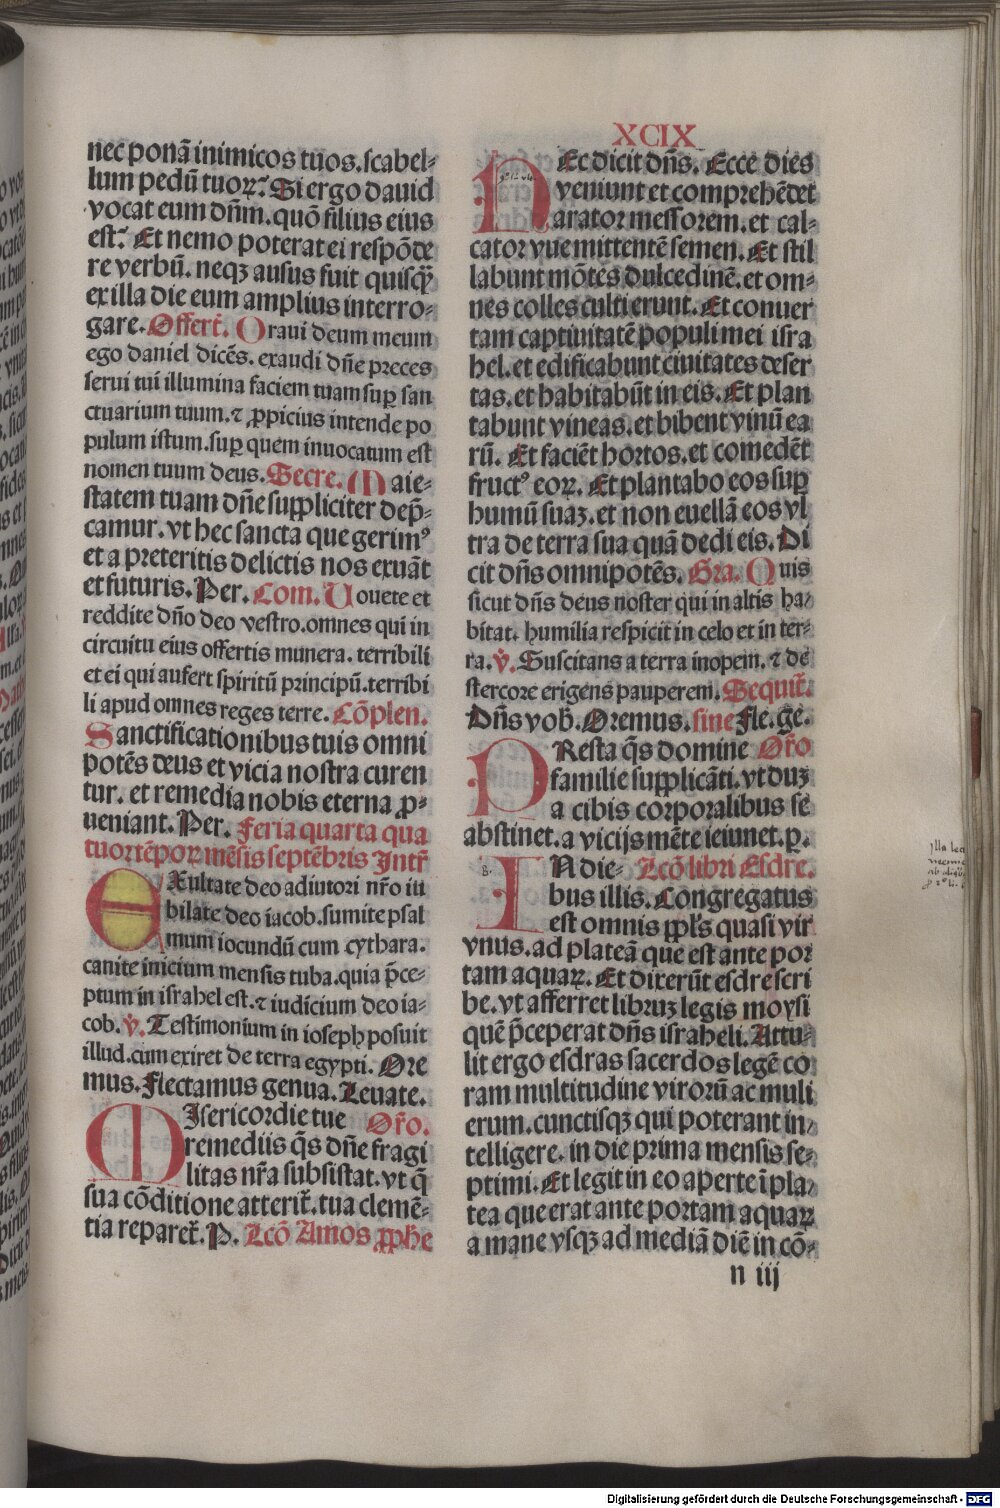 XCIX
nec ponā inimicos tuos. scabel-
lum pedū tuoꝝ. Si ergo dauid
vocat eum dn̄m. quō filius eius
est. Et nemo poterat ei respōde
re verbū. neqꝫ ausus fuit quisqȳ
ex illa die eum amplius interro-
gare. Offert̄. Oraui deum meum
ego daniel dicēs. exaudi dn̄e preces
serui tui illumina faciem tuam suꝑ san
ctuarium tuum. ⁊ ꝓpicius intende po
pulum istum. suꝑ quem inuocatum est
nomen tuum deus. Secre. Maie-
statem tuam dn̄e suppliciter dep̄-
camur. vt hec sancta que gerimꝰ
et a preteritis delictis nos exuāt
et futuris. Per. Com. Uouete et
reddite dn̄o deo vestro. omnes qui in
circuitu eius offertis munera. terribili
et ei qui aufert spiritū principū. terribi
li apud omnes reges terre. Cōplen.
Sanctificationibus tuis omni
potēs deus et vicia nostra curen
tur. et remedia nobis eterna ꝓ-
ueniant. Per. Feria quarta qua
tuortēpoꝝ mēsis septēbris Intr̄
EXultate deo adiutori nr̄o iu
bilate deo iacob. sumite psal
mum iocundū cum cythara.
canite inicium mensis tuba. quia p̄ce-
ptum in israhel est. ⁊ iudicium deo ia-
cob. v̄. Testimonium in ioseph posuit
illud. cum exiret de terra egypti. Ore
mus. Flectamus genua. Leuate.
MIsericordie tue Or̄o.
remediis q̄s dn̄e fragi
litas nr̄a subsistat. vt q̄
sua cōditione atterit̄. tua clemē-
tia reparet̄. P. Lcō Amos ꝓphe
HEc dicit dn̄s. Ecce dies
veniunt et comprehēdet
arator messorem. et cal-
cator vue mittentē semen. Et stil
labunt mōtes dulcedinē. et om-
nes colles culti erunt. Et conuer
tam captiuitatē populi mei isra
hel. et edificabunt ciuitates deser
tas. et habitabūt in eis. Et plan
tabunt vineas. et bibent vinū ea
rū. Et faciēt hortos. et comedēt
fructꝰ eoꝝ. Et plantabo eos suꝑ
humū suaꝫ. et non euellā eos vl
tra de terra sua quā dedi eis. Di
cit dn̄s omnipotēs. Gra. Quis
sicut dn̄s deus noster qui in altis ha-
bitat. humilia respicit in celo et in ter-
ra. v̄. Suscitans a terra inopem. ⁊ de
stercore erigens pauperem. Sequit̄.
Dn̄s vob̄. Oremus. sine Fle. ge.
PResta q̄s domine Or̄o
familie supplicāti. vt duꝫ
a cibis corporalibus se
abstinet. a vicijs mēte ieiunet. p.
IN die- Lcō libri Esdre.
bus illis. Congregatus
est omnis ppl̄s quasi vir
vnus. ad plateā que est ante por
tam aquaꝝ. Et dixerūt esdre scri
be. vt afferret libruꝫ legis moysi
quē p̄ceperat dn̄s israheli. Attu-
lit ergo esdras sacerdos legē co
ram multitudine virorū ac muli
erum. cunctisqꝫ qui poterant in-
telligere. in die prima mensis se-
ptimi. Et legit in eo aperte ī pla-
tea que erat ante portam aquaꝝ
a mane vsqꝫ ad mediā diē in cō-
n iij
Digitalisierung gefördert durch die Deutsche Forschungsgemeinschaft - DFG